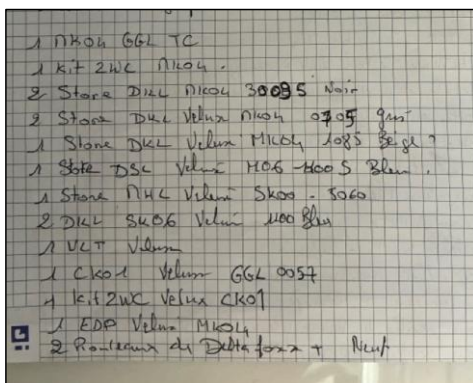 1 MK04 GGL TC
1 Kit 2WC MK04.
2 Store DKL MK04 3009S Noir
2 Store DKL Velux MK04 0705 gris
1 Store DKL Velux MK04 1085 Beige ?
1 Store DSL Velux M06 1100S Bleu.
1 Store MHL Velux SK00 - 5060
2 DKL SK06 Velux 1100 Bleu
1 VLT Velux
1 CK01 Velux GGL 0057
1 Kit 2WC Velux CK01
1 EDP Velux MK04
2 Rouleaux de Delta foxx + Neuf